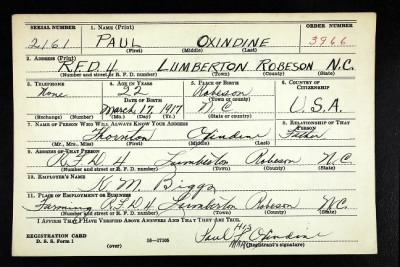 SERIAL NUMBER 1. NAME (Print) ORDER NUMBER
2161 PAUL OXINDINE 3966
(First) (Middle) (Last)
2. ADDRESS (Print)
R.F.D. 4 LUMBERTON ROBESON N.C.
(Number and street or R. F. D. number) (Town) (County) (State)
3. TELEPHONE 4. AGE IN YEARS 5. PLACE OF BIRTH 6. COUNTRY OF CITIZENSHIP
None 22 Robeson
DATE OF BIRTH (Town or county)
March 17 1917 N.C. U.S.A.
(Exchange) (Number) (Mo.) (Day) (Yr.) (State or country)
7. NAME OF PERSON WHO WILL ALWAYS KNOW YOUR ADDRESS 8. RELATIONSHIP OF THAT PERSON
Thornton Oxindine Father
(Mr., Mrs., Miss) (First) (Middle) (Last)
9. ADDRESS OF THAT PERSON
R.F.D. 4 Lumberton Robeson N.C.
(Number and street or R. F. D. number) (Town) (County) (State)
10. EMPLOYER'S NAME
K. M. Biggs
11. PLACE OF EMPLOYMENT OR BUSINESS
Farming R.F.D. 4 Lumberton Robeson N.C.
(Number and street or R. F. D. number) (Town) (County) (State)
I AFFIRM THAT I HAVE VERIFIED ABOVE ANSWERS AND THAT THEY ARE TRUE.
REGISTRATION CARD His
D. S. S. Form 1 (over) 16-17105 Paul X Oxindine
Mark (Registrant's signature)